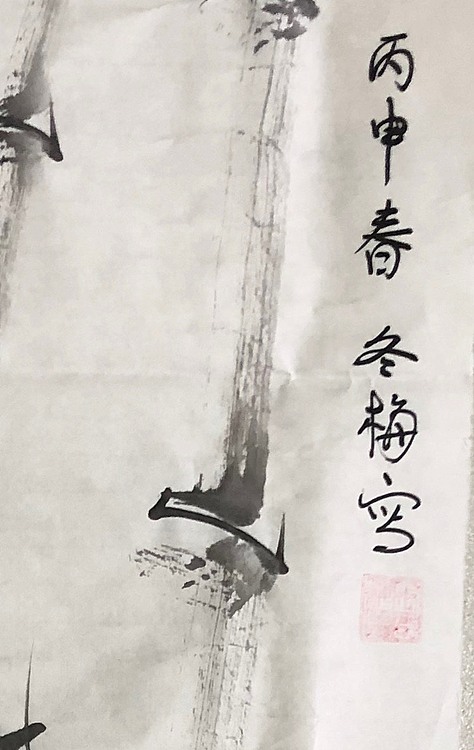 丙申春 冬梅写